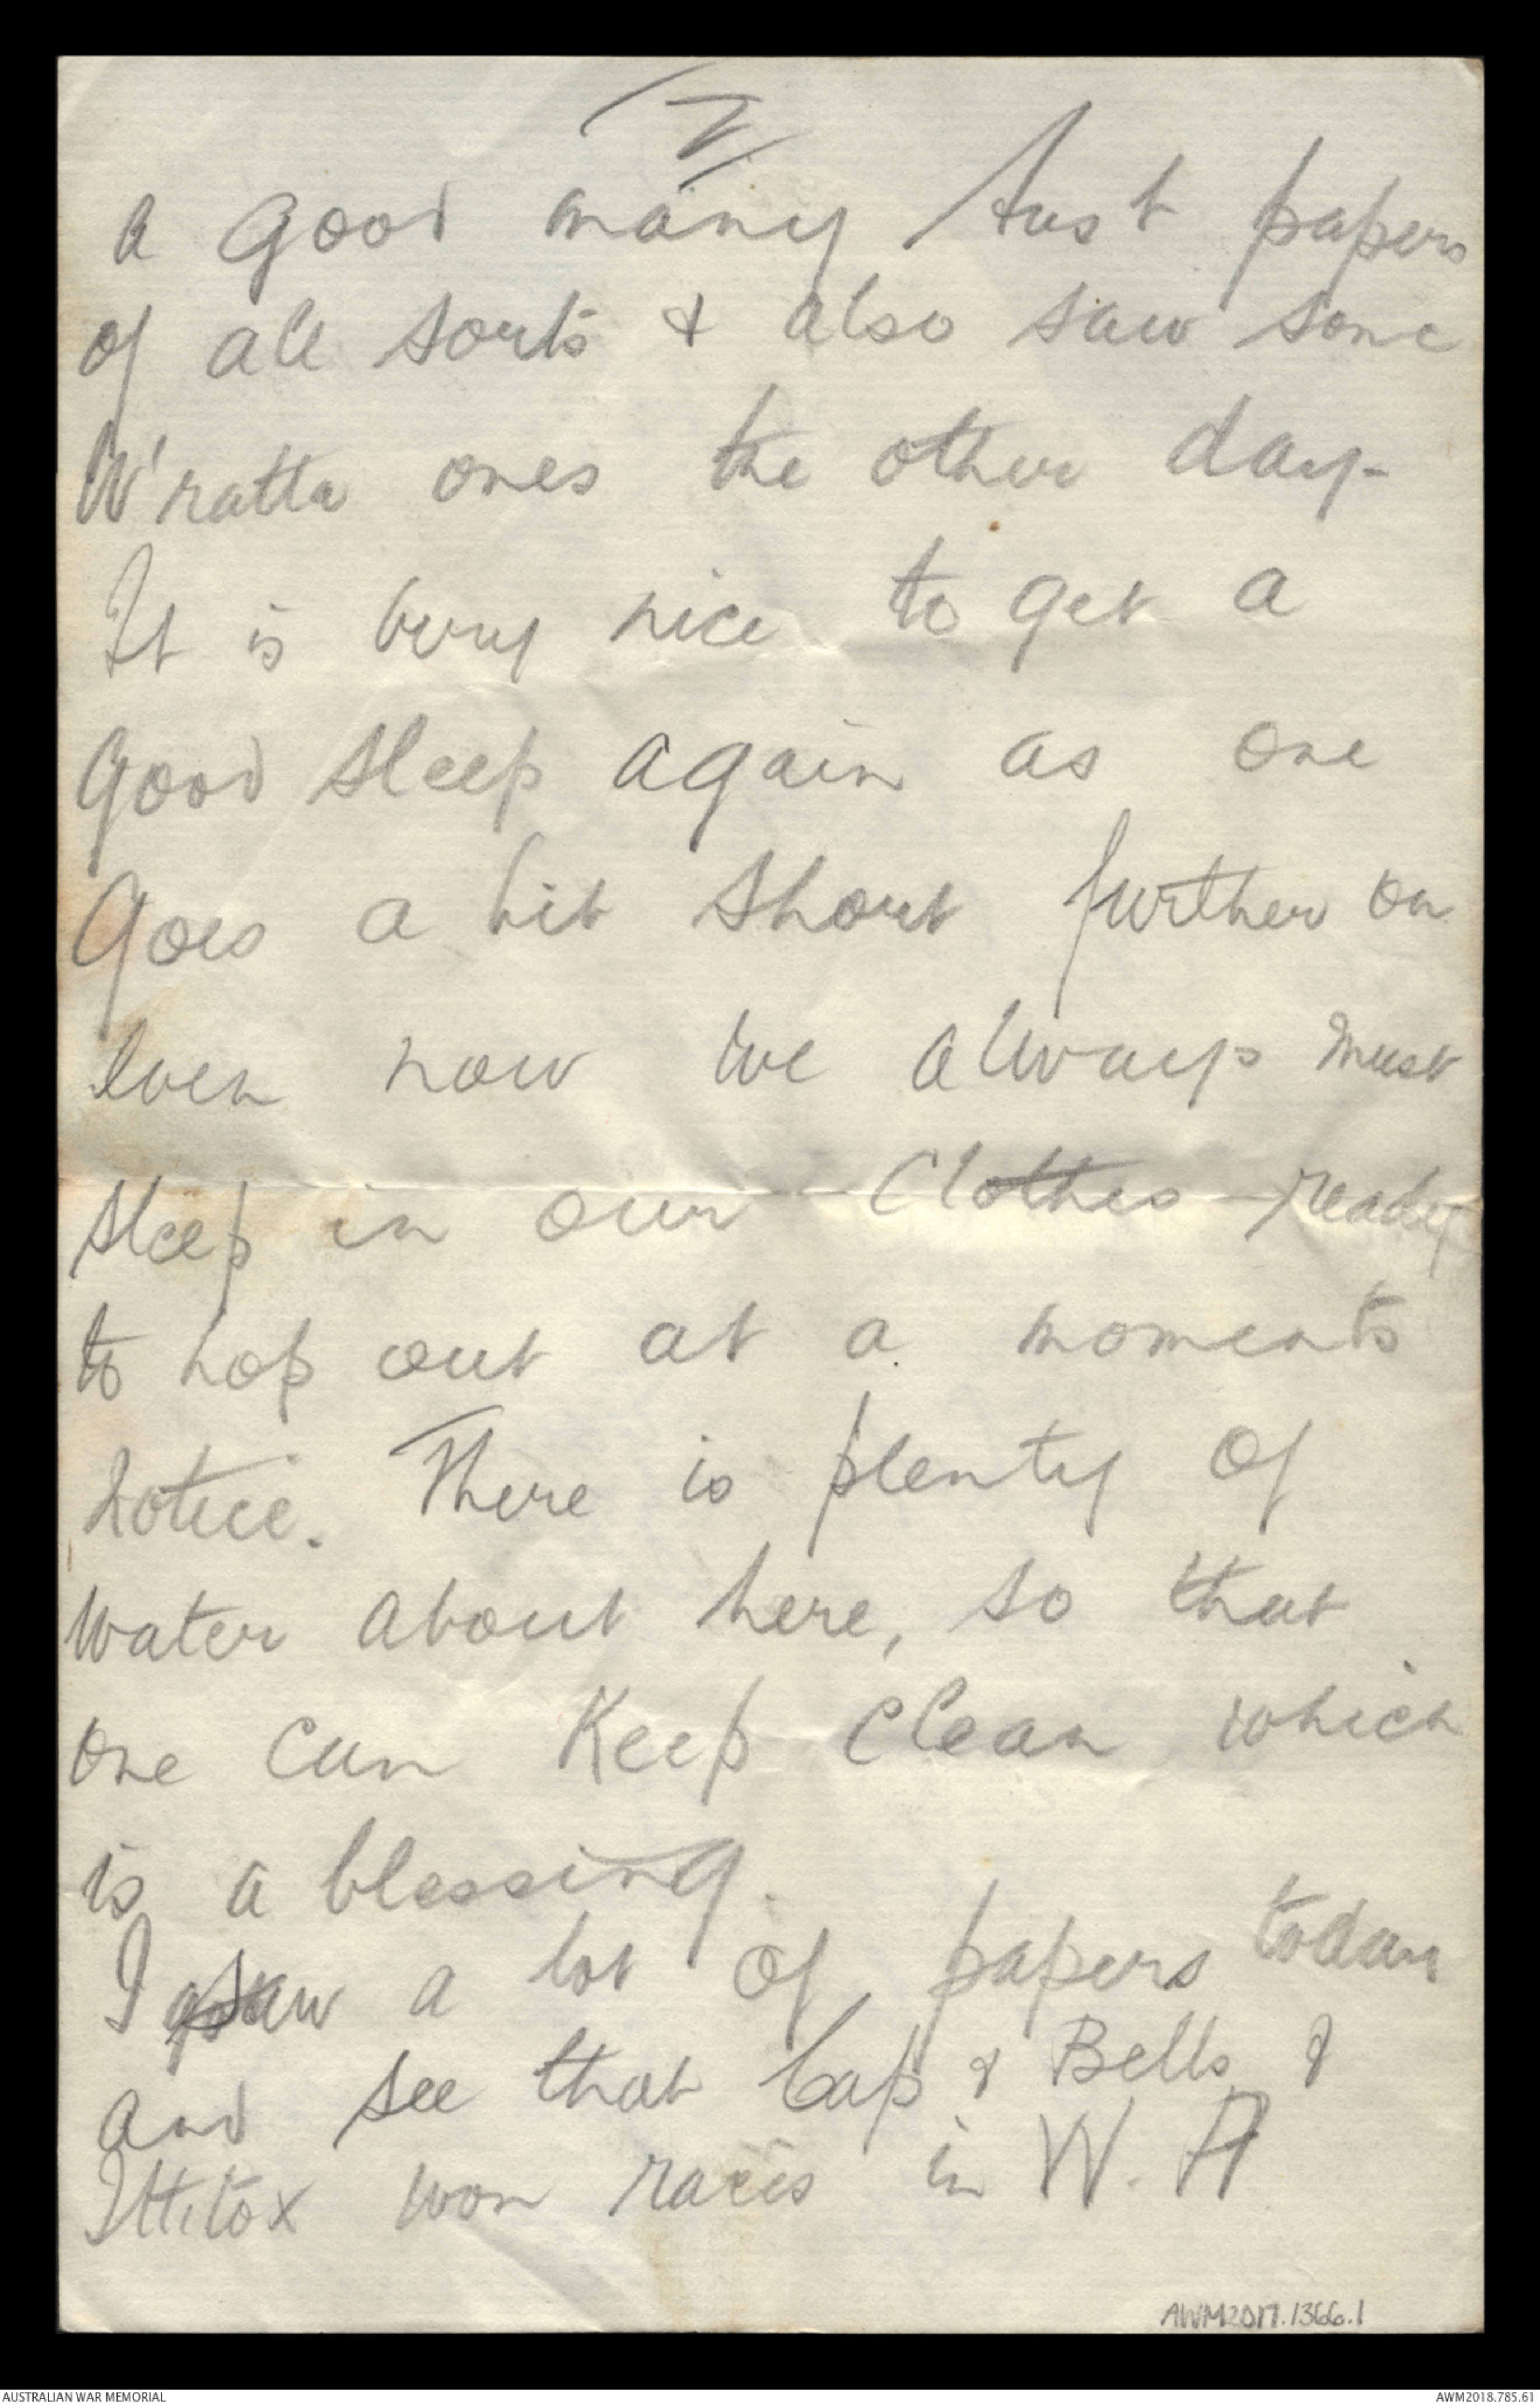 V
a good many Aust papers
of all sorts & also saw some
W'ratta ones the other day-
It is very nice to get a
good sleep again as one
goes a bit short further on
even now we always must
sleep in our clothes ready
to hop out at a moments
notice. There is plenty of
water about here, so that
one can keep clean which
is a blessing.
I saw a lot of papers today
and see that Cap & Bells &
Ittitox won races in W. A
AWM2017.1366.1
AUSTRALIAN WAR MEMORIAL
AWM2018.785.61